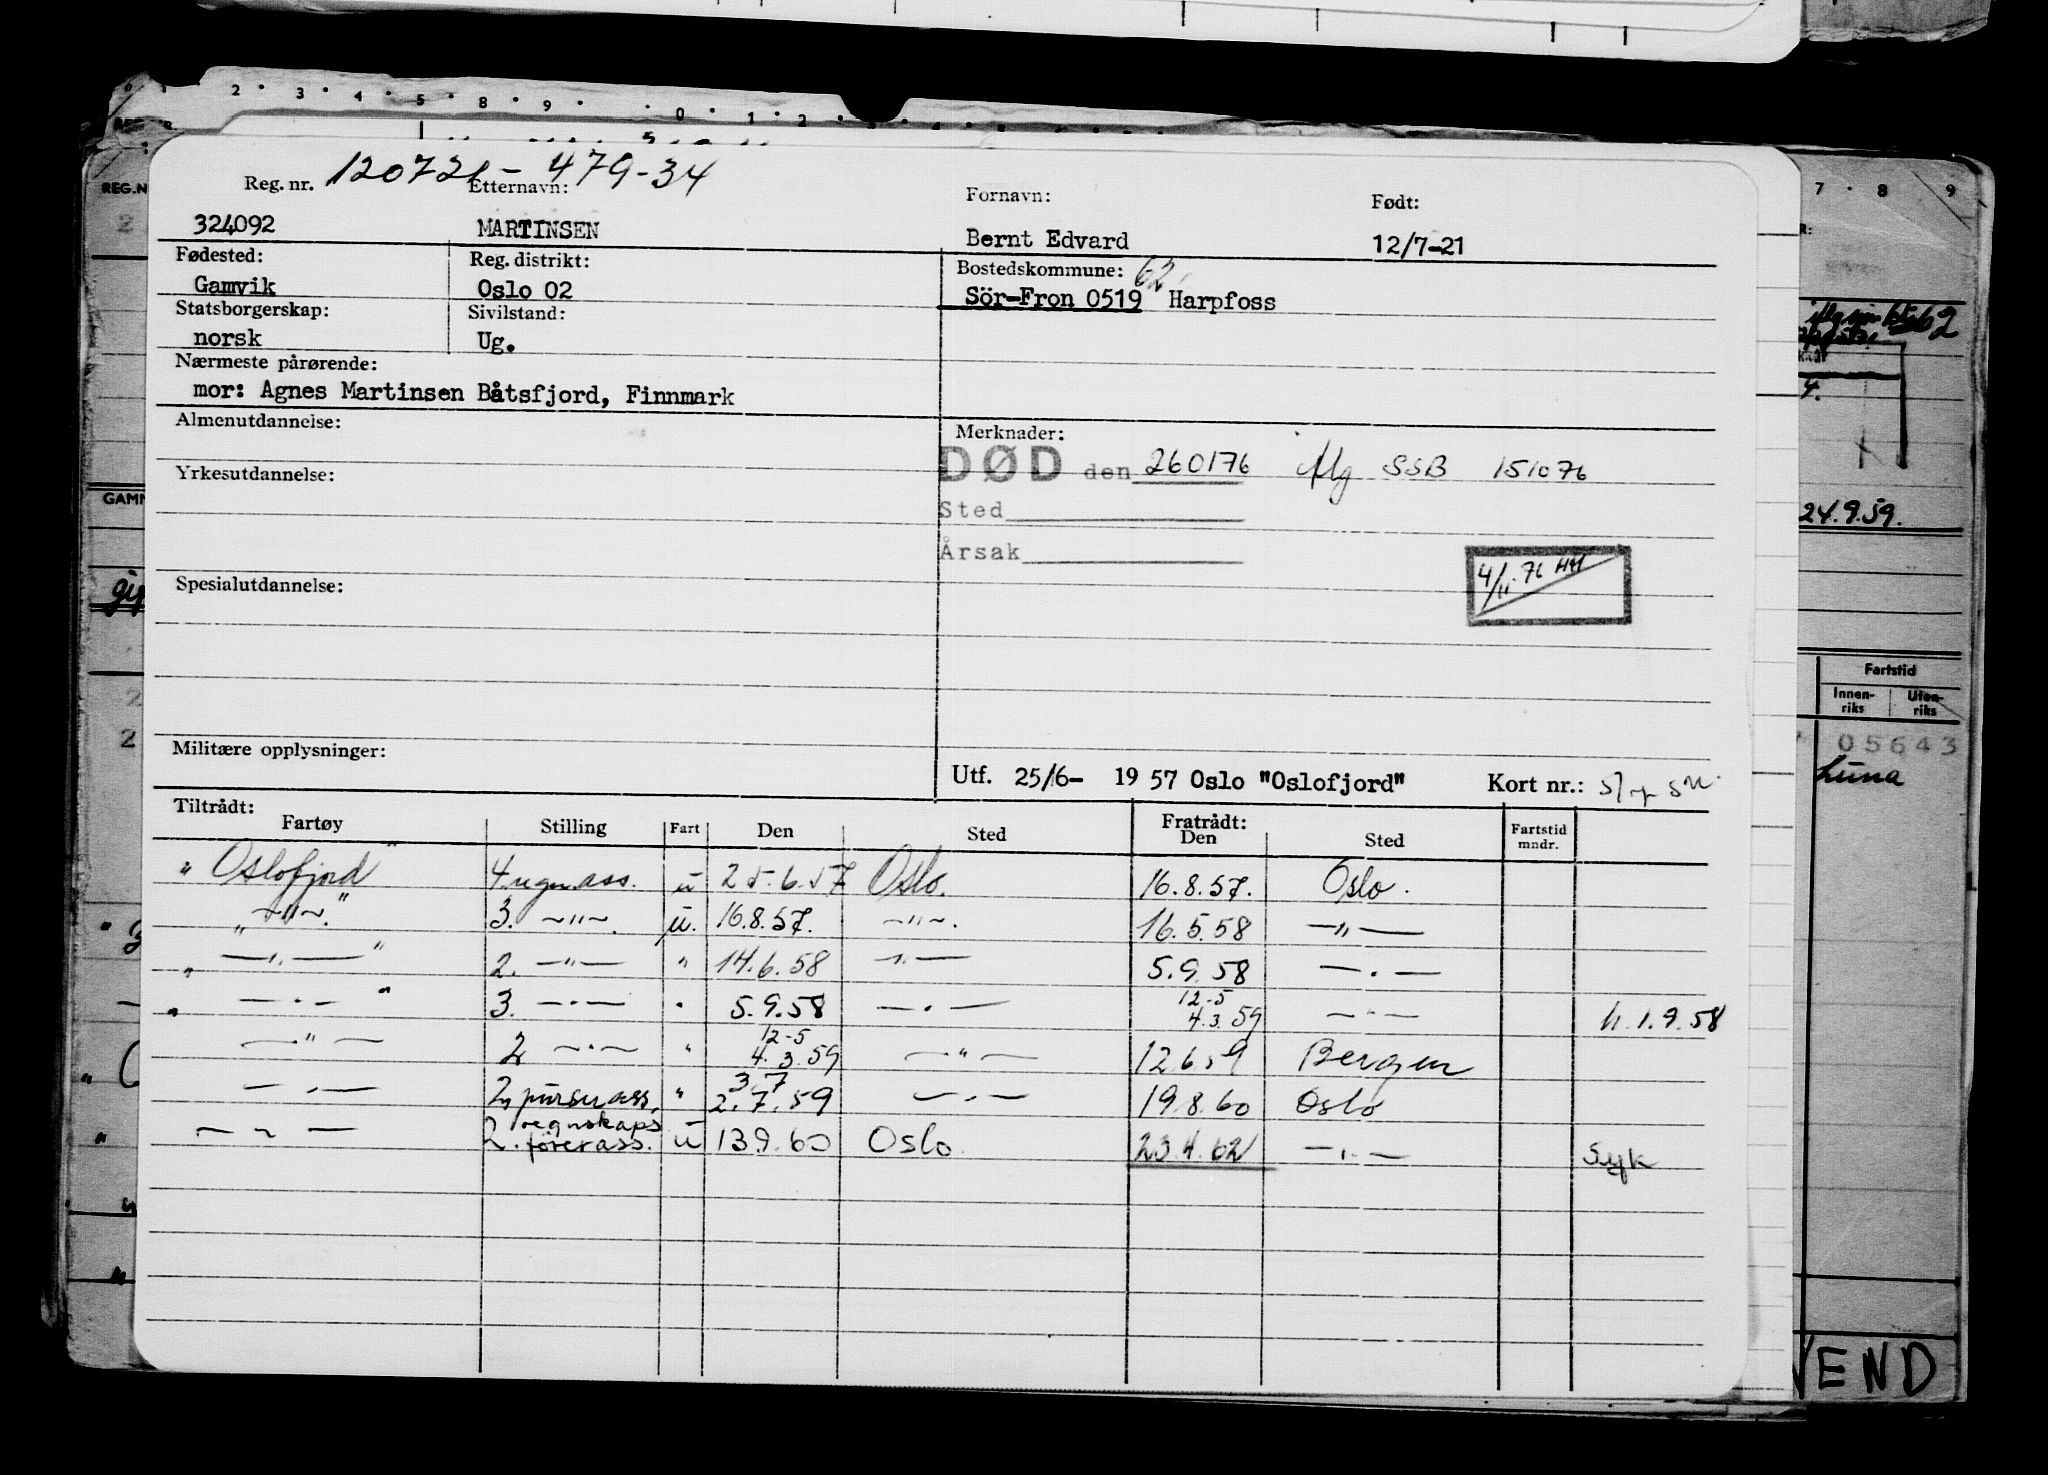 120721-479-34
Reg. nr. Etternavn: Fornavn: Født:
324092 MARTINSEN Bernt Edvard 12/7-21
Fødested: Reg. distrikt: Bostedskommune: 62
Gamvik Oslo 02 Sör-Fron 0519 Harpfoss
Statsborgerskap: Sivilstand:
norsk Ug.
Nærmeste pårørende:
mor: Agnes Martinsen Båtsfjord, Finnmark
Almenutdannelse: Merknader:
DØD den 260176 mlg SSB 151076
Yrkesutdannelse:
Sted
Årsak
4/11 76
Spesialutdannelse:
Militære opplysninger:
Utf. 25/6- 19 57 Oslo "Oslofjord" Kort nr.:
Tiltrådt: Fratrådt:
Fartøy Stilling Fart Den Sted Den Sted Fartstid mndr.
"Oslofjord" 4 regn.ass. u 25.6.57 Oslo. 16.8.57. Oslo.
" —"—." 3. —"—. u. 16.8.57. —"—. 16.5.58 —"—
" —"—" 2. —"— " 14.6.58 —"— 5.9.58 —"—
" —"— " 3. —"— " 5.9.58 —"— 12-5 4.3.59 —"— h.1.9.58
—"— 2 —"— " 12-5 4.3.59 —"— 12.6.59 Bergen
—"— 2. purserass. " 3.7 2.7.59 —"— 19.8.60 Oslo
—"— 2. regnskapsförerass. u 13.9.60 Oslo 23.4.62 —"— Syk
REG.N
GAMM
7 · 8 9
62
24.9.59.
Fartstid
Innenriks Utenriks
05643
Luna
VEND